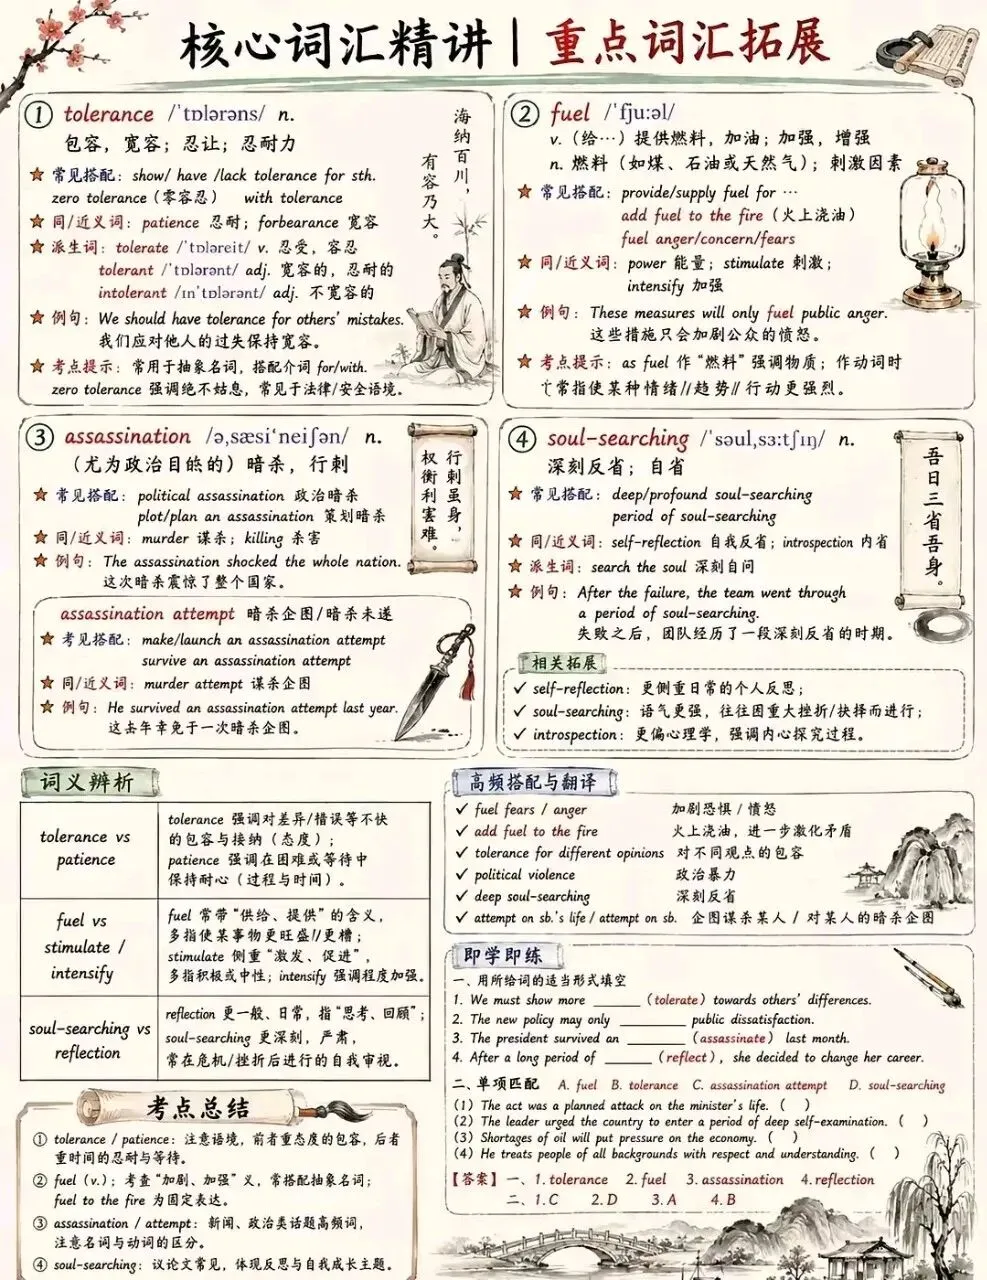 核心词汇精讲 | 重点词汇拓展
① tolerance /ˈtɒlərəns/ n.
包容，宽容；忍让；忍耐力
★ 常见搭配：show/ have /lack tolerance for sth.
zero tolerance（零容忍） with tolerance
★ 同/近义词：patience 忍耐；forbearance 宽容
★ 派生词：tolerate /ˈtɒləreit/ v. 忍受，容忍
tolerant /ˈtɒlərənt/ adj. 宽容的，忍耐的
intolerant /ɪnˈtɒlərənt/ adj. 不宽容的
★ 例句：We should have tolerance for others' mistakes.
我们应对他人的过失保持宽容。
★ 考点提示：常用于抽象名词，搭配介词 for/with.
zero tolerance 强调绝不姑息，常见于法律/安全语境。
海纳百川，
有容乃大。
② fuel /ˈfju:əl/
v.（给…）提供燃料，加油；加强，增强
n. 燃料（如煤、石油或天然气）；刺激因素
★ 常见搭配：provide/supply fuel for …
add fuel to the fire（火上浇油）
fuel anger/concern/fears
★ 同/近义词：power 能量；stimulate 刺激；
intensify 加强
★ 例句：These measures will only fuel public anger.
这些措施只会加剧公众的愤怒。
★ 考点提示：as fuel 作“燃料”强调物质；作动词时
常指使某种情绪//趋势// 行动更强烈。
③ assassination /ə,sæsiˈneiʃən/ n.
（尤为政治目的的）暗杀，行刺
★ 常见搭配：political assassination 政治暗杀
plot/plan an assassination 策划暗杀
★ 同/近义词：murder 谋杀；killing 杀害
★ 例句：The assassination shocked the whole nation.
这次暗杀震惊了整个国家。
行刺虽身，
权衡利害难。
assassination attempt 暗杀企图/暗杀未遂
★ 考见搭配：make/launch an assassination attempt
survive an assassination attempt
★ 同/近义词：murder attempt 谋杀企图
★ 例句：He survived an assassination attempt last year.
这去年幸免于一次暗杀企图。
④ soul-searching /ˈsəul,sɜ:tʃɪŋ/ n.
深刻反省；自省
★ 常见搭配：deep/profound soul-searching
period of soul-searching
★ 同/近义词：self-reflection 自我反省；introspection 内省
★ 派生词：search the soul 深刻自问
★ 例句：After the failure, the team went through
a period of soul-searching.
失败之后，团队经历了一段深刻反省的时期。
吾日三省吾身。
相关拓展
✓ self-reflection：更侧重日常的个人反思；
✓ soul-searching：语气更强，往往因重大挫折/抉择而进行；
✓ introspection：更偏心理学，强调内心探究过程。
词义辨析
tolerance vs
patience
tolerance 强调对差异/错误等不快
的包容与接纳（态度）；
patience 强调在困难或等待中
保持耐心（过程与时间）。
fuel vs
stimulate /
intensify
fuel 常带“供给、提供”的含义，
多指使某事物更旺盛//更糟；
stimulate 侧重“激发、促进”，
多指积极或中性；intensify 强调程度加强。
soul-searching vs
reflection
reflection 更一般、日常，指“思考、回顾”；
soul-searching 更深刻，严肃，
常在危机/挫折后进行的自我审视。
考点总结
① tolerance / patience：注意语境，前者重态度的包容，后者
重时间的忍耐与等待。
② fuel (v.)；考查“加剧、加强”义，常搭配抽象名词；
fuel to the fire 为固定表达。
③ assassination / attempt：新闻、政治类话题高频词，
注意名词与动词的区分。
④ soul-searching：议论文常见，体现反思与自我成长主题。
高频搭配与翻译
✓ fuel fears / anger 加剧恐惧 / 愤怒
✓ add fuel to the fire 火上浇油，进一步激化矛盾
✓ tolerance for different opinions 对不同观点的包容
✓ political violence 政治暴力
✓ deep soul-searching 深刻反省
✓ attempt on sb.'s life / attempt on sb. 企图谋杀某人 / 对某人的暗杀企图
即学即练
一、用所给词的适当形式填空
1. We must show more ______ (tolerate) towards others' differences.
2. The new policy may only ________ public dissatisfaction.
3. The president survived an _______ (assassinate) last month.
4. After a long period of ______ (reflect), she decided to change her career.
二、单项匹配 A. fuel B. tolerance C. assassination attempt D. soul-searching
(1) The act was a planned attack on the minister's life. ( )
(2) The leader urged the country to enter a period of deep self-examination. ( )
(3) Shortages of oil will put pressure on the economy. ( )
(4) He treats people of all backgrounds with respect and understanding. ( )
【答案】一、1. tolerance 2. fuel 3. assassination 4. reflection
二、1. C 2. D 3. A 4. B